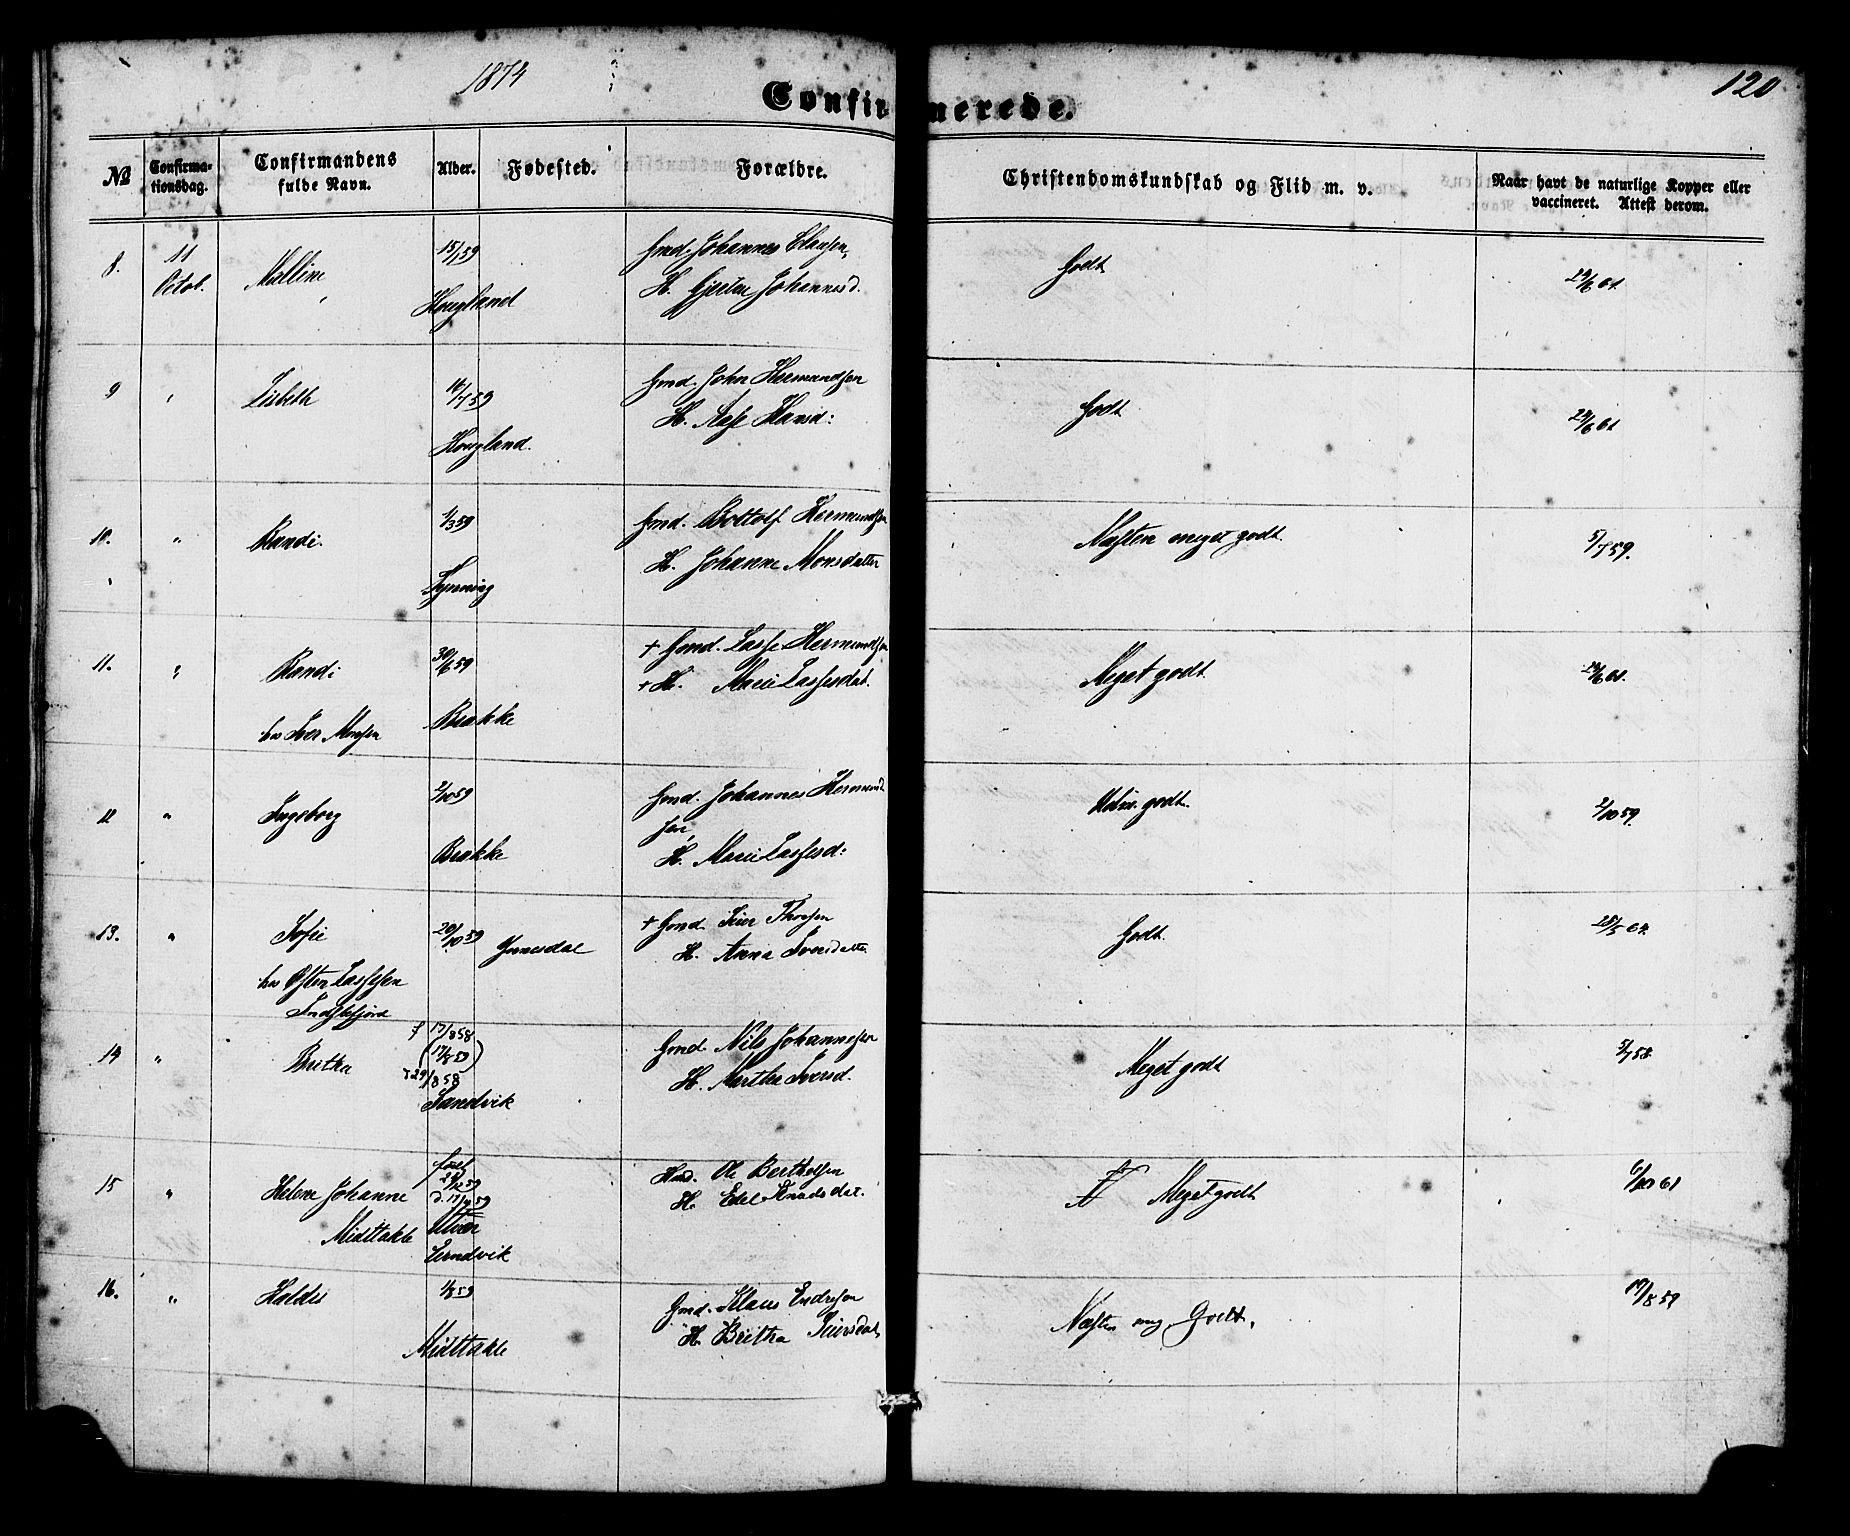 1874
120
Confirmerede.
№
Confirmationsdag.
Confirmandens fulde Navn.
Alder.
Fødested.
Forældre.
Christendomskundskab og Flid m. v.
Naar havt de naturlige Kopper eller vaccineret. Attest derom.
8. 11 Octob. Malline 15/1 59 Gmd. Johannes Clausen, Godt 24/6 61.
Hougland H. Gjertru Johannesd.
9 " Lisbeth 16/7 59 Gmd. John Hermundsen Godt 24/6 61
Hougland. H. Aase Hansd:
10. " Randi. 1/3 59 Gmd. Bottolf Hermundsen Næsten meget godt. 5/7 59.
H. Johanne Monsdatter
11. " Randi 30/6 59 + Gmd. Lasse Hermundsen Meget godt 24/6 61.
hos Iver Monsen Brække + H. Marie Lassesdat.
12 " Ingeborg 2/10 59 Gmd. Johannes Hermund Udm. godt. 2/10 59.
sen,
Brække H. Marie Lassesd:
13. " Sofie 20/10 59 Ynnesdal + Gmd. Thorsen Godt. 28/5 64.
hos Østen Lassesen H. Anna Iversdatter
Indrefjord
14 " Britha f 17/8 58 Gmd. Nils Johannesen Meget godt 5/7 58.
(17/8 59)
29/8 58 H. Martha Iversd.
Sandvik
15 " Helene Johanne 17/12 59 Ole Berthelsen Meget godt 6/10 61
Midttakle H. Edel Knudsdat.
Utvær
16. " Haldis 1/8 59 Gmd. Klaus Endresen Næsten meg. Godt. 17/8 59
Midttakle H. Britha